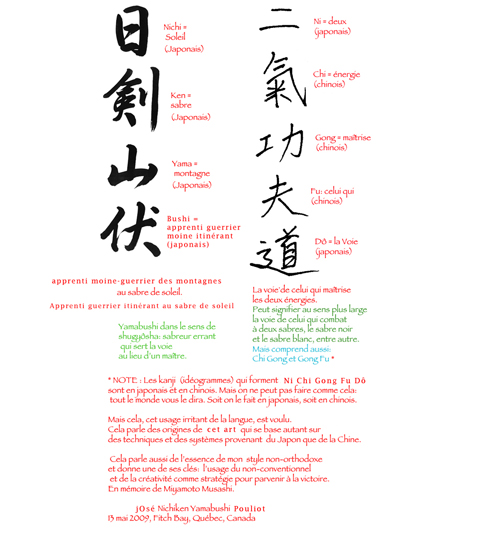 日
Nichi =
Soleil
(Japonais)
剣
Ken =
sabre
(Japonais)
山
Yama =
montagne
(Japonais)
伏
Bushi =
apprenti guerrier
moine itinérant
(japonais)
apprenti moine-guerrier des montagnes
au sabre de soleil.
Apprenti guerrier itinérant au sabre de soleil
Yamabushi dans le sens de
shugyôsha: sabreur errant
qui sert la voie
au lieu d'un maître.
二
Ni = deux
(japonais)
氣
Chi = énergie
(chinois)
功
Gong = maîtrise
(chinois)
夫
Fu: celui qui
(chinois)
道
Dô = la Voie
(japonais)
La voie de celui qui maîtrise
les deux énergies.
Peut signifier au sens plus large
la voie de celui qui combat
à deux sabres, le sabre noir
et le sabre blanc, entre autre.
Mais comprend aussi:
Chi Gong et Gong Fu *
* NOTE : Les kanji (idéogrammes) qui forment Ni Chi Gong Fu Dô
sont en japonais et en chinois. Mais on ne peut pas faire comme cela:
tout le monde vous le dira. Soit on le fait en japonais, soit en chinois.
Mais cela, cet usage irritant de la langue, est voulu.
Cela parle des origines de cet art qui se base autant sur
des techniques et des systèmes provenant du Japon que de la Chine.
Cela parle aussi de l'essence de mon style non-orthodoxe
et donne une de ses clés: l'usage du non-conventionnel
et de la créativité comme stratégie pour parvenir à la victoire.
En mémoire de Miyamoto Musashi.
jOsé Nichiken Yamabushi Pouliot
13 mai 2009, Fitch Bay, Québec, Canada